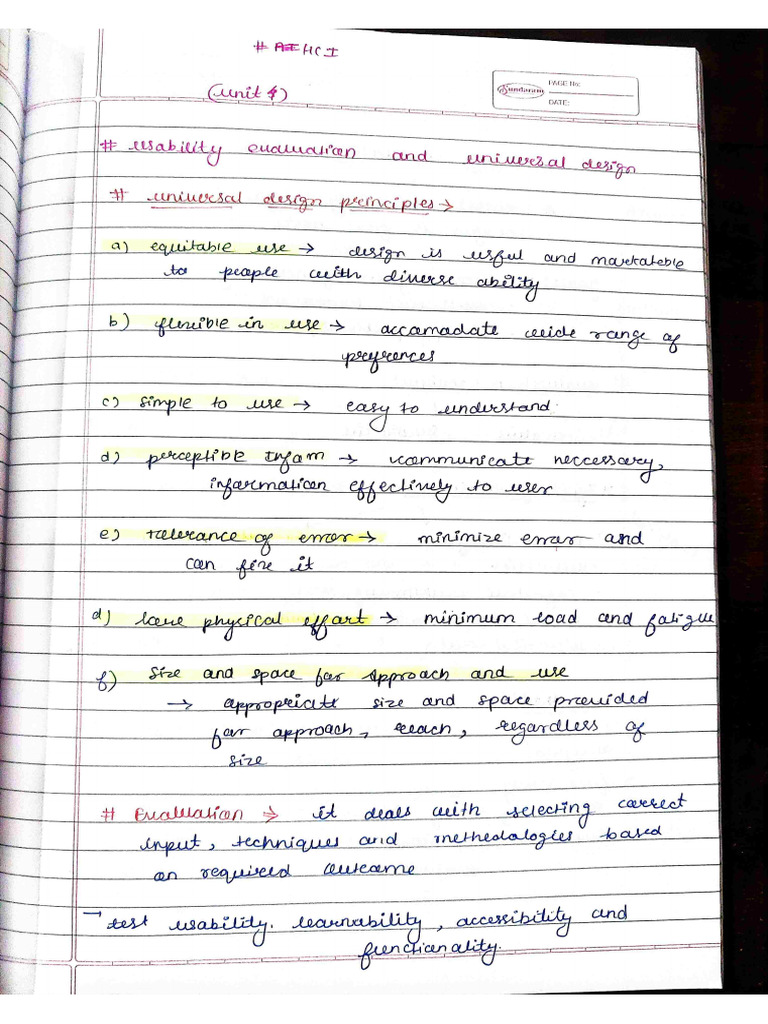 # HCI
(Unit 4)
Sundaram
PAGE No:
DATE:
# Usability evaluation and universal design
# universal design principles →
a) equitable use → design is usful and marketable
to people with diverse ability
b) flexible in use → accomadate wide range of
prefrences
c) simple to use → easy to understand.
d) perceptible Infom → communicate neccessary,
information effectively to user
e) tolerance of error → minimize error and
can fixe it
d) lowe physical effort → minimum load and fatigue
f) size and space for approach and use
→ appropriate size and space provided
for approach, reach, regardless of
size
# Evaluation → it deals with selecting correct
input, techniques and methedologies based
on required outcome
→ test usability. learnability, accessibility and
functionality.